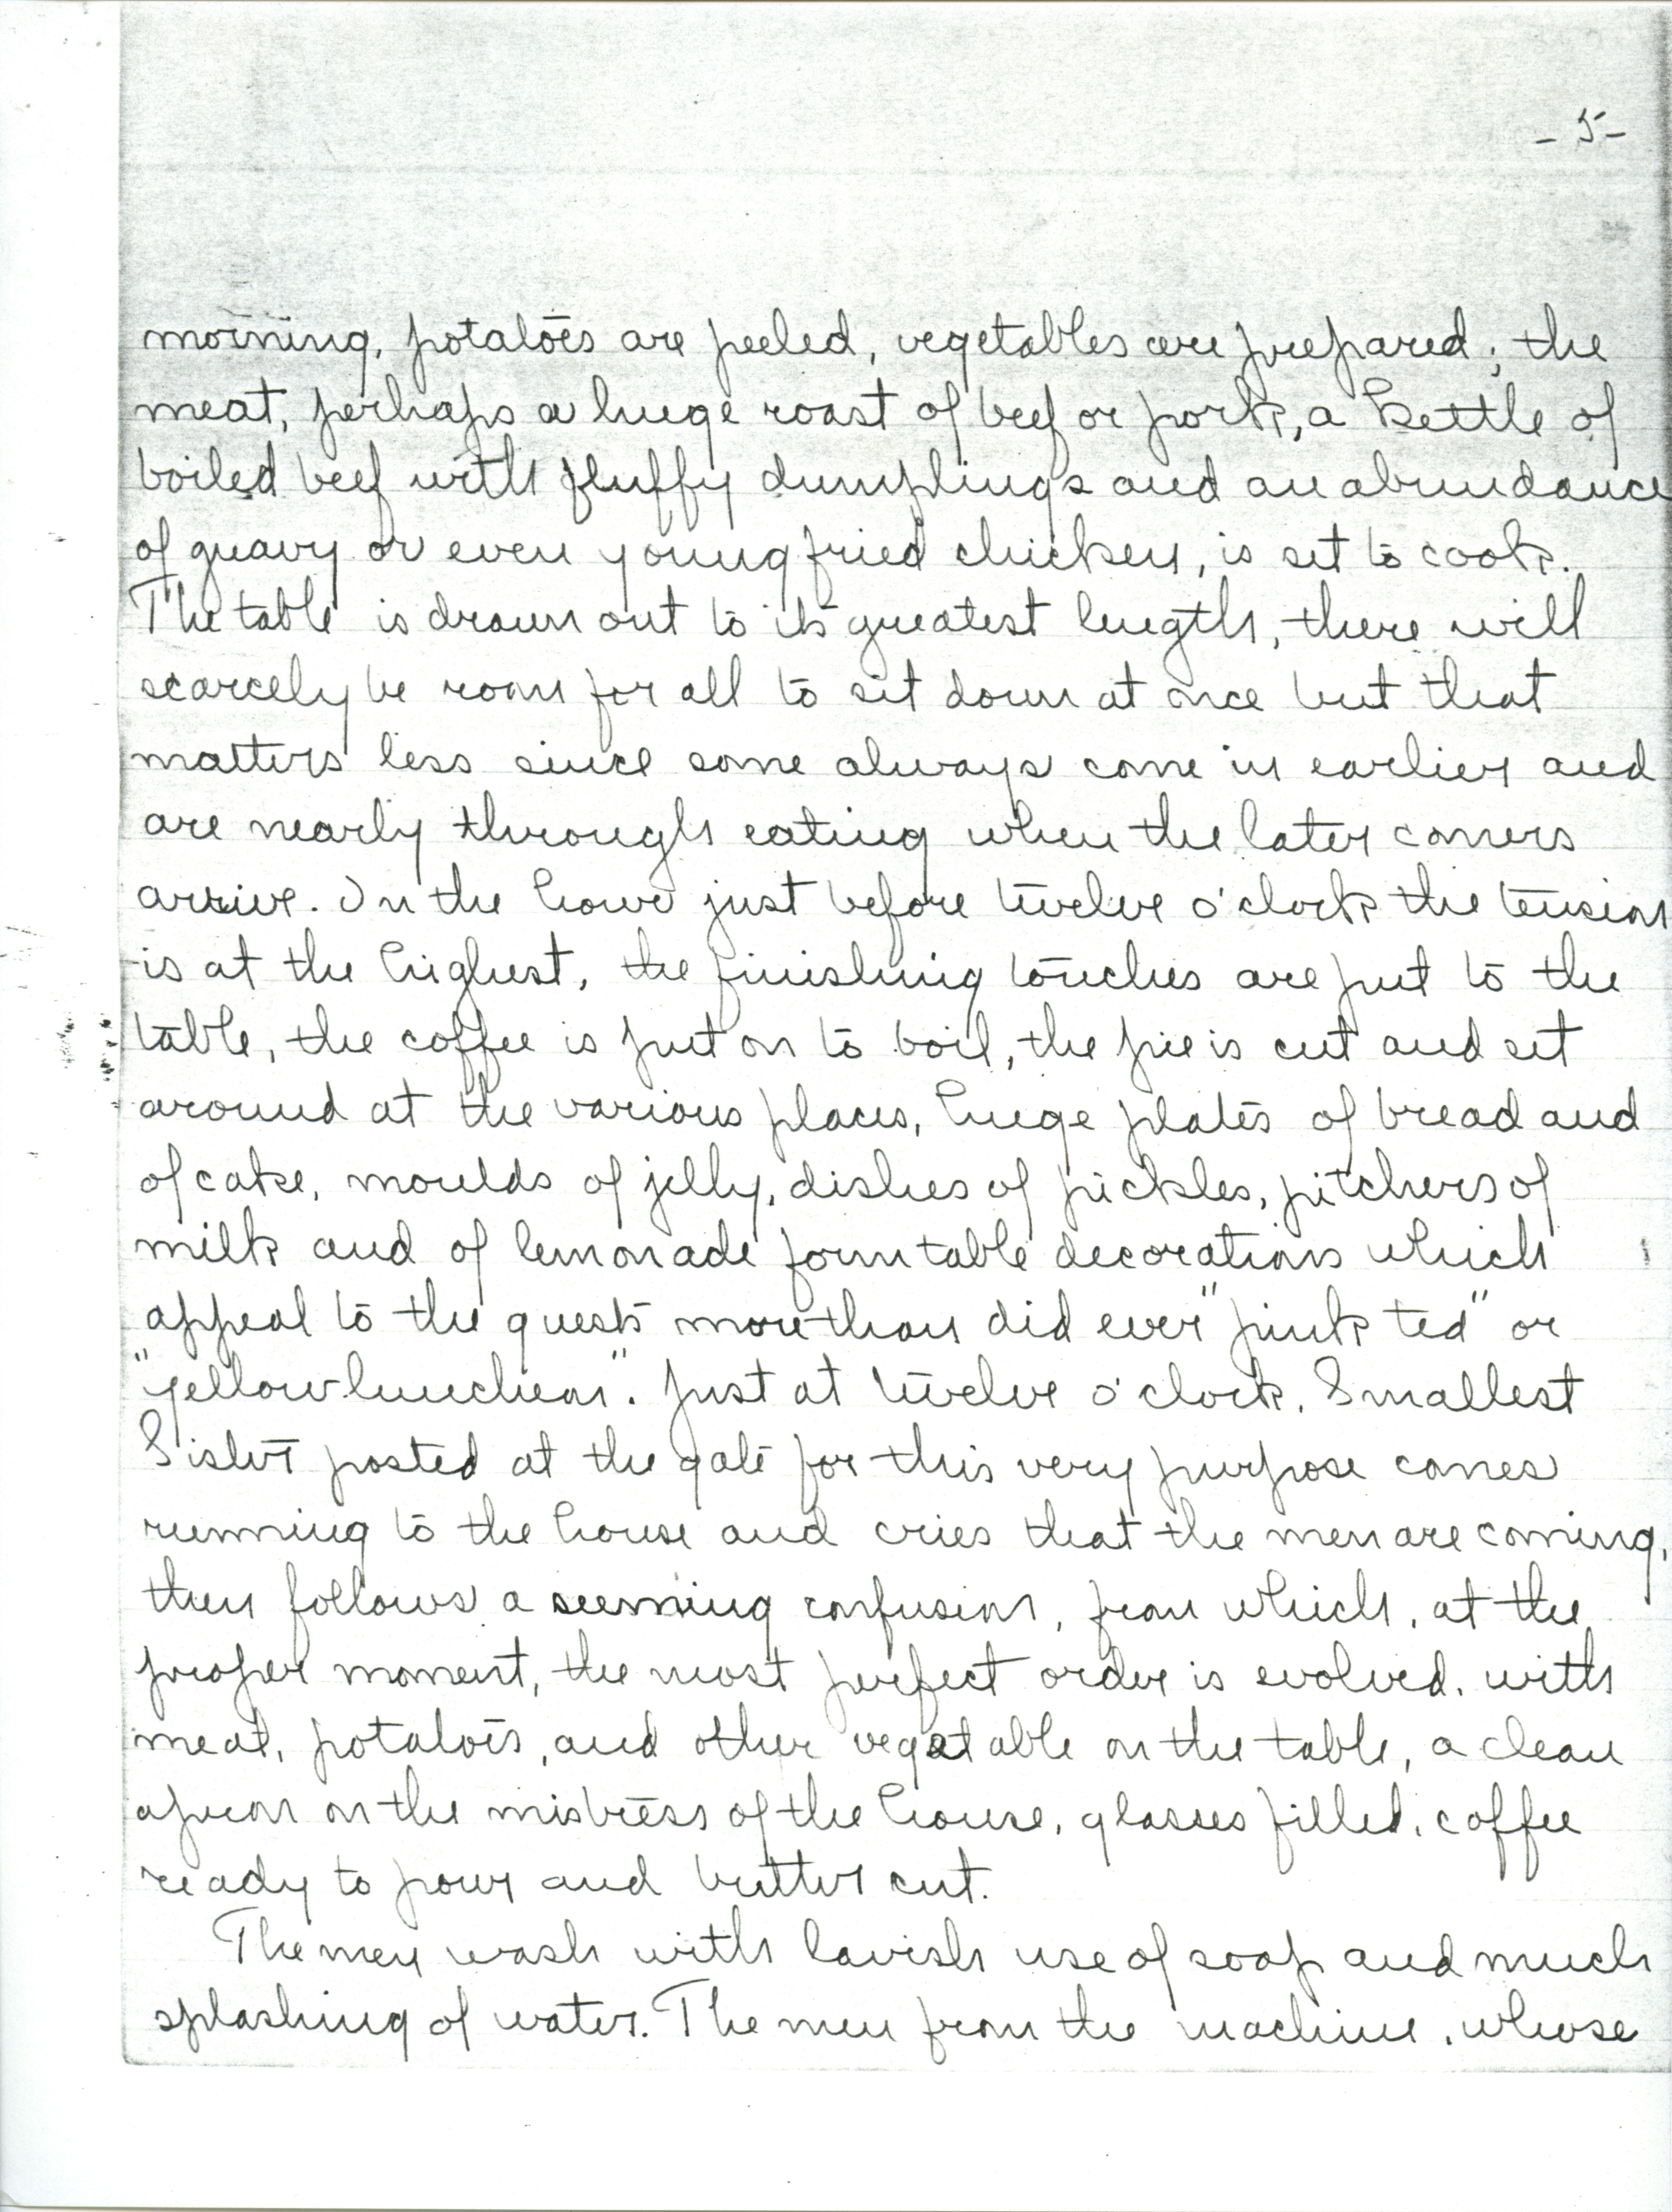 - 5 -
morning, potatoes are peeled, vegetables are prepared; the
meat, perhaps a huge roast of beef or pork, a kettle of
boiled beef with fluffy dumplings and an abundance
of gravy or even young fried chicken, is set to cook.
The table is drawn out to its greatest length, there will
scarcely be room for all to sit down at once but that
matters less since some always come in earlier and
are nearly through eating when the later comers
arrive. In the hour just before twelve o'clock the tension
is at the highest, the finishing touches are put to the
table, the coffee is put on to boil, the pie is cut and set
around at the various places, huge plates of bread and
of cake, moulds of jelly, dishes of pickles, pitchers of
milk and of lemonade form table decorations which
appeal to the guests more than did ever "pink tea" or
"yellow luncheon". Just at twelve o'clock, Smallest
Sister posted at the gate for this very purpose comes
running to the house and cries that the men are coming,
then follows a seeming confusion, from which, at the
proper moment, the most perfect order is evolved, with
meat, potatoes, and other vegatable on the table, a clean
apron on the mistress of the house, glasses filled, coffee
ready to pour and butter cut.
The men wash with lavish use of soap and much
splashing of water. The men from the machine, whose